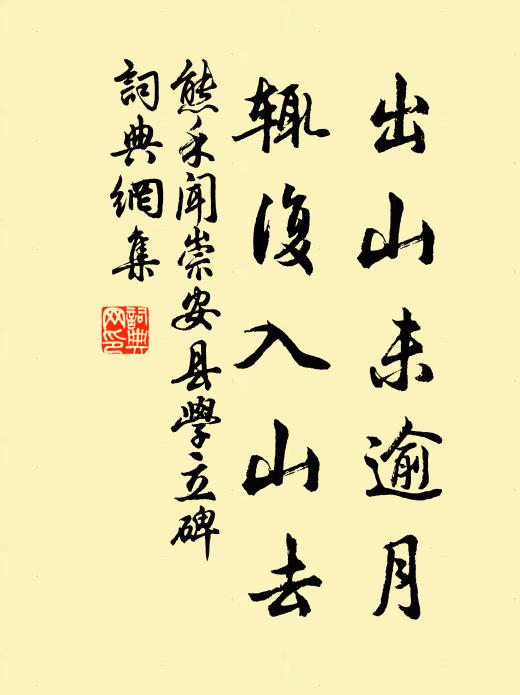 出山未逾月
輒復入山去
熊禾闻崇安县學立碑
詞典網集
詞典
网印